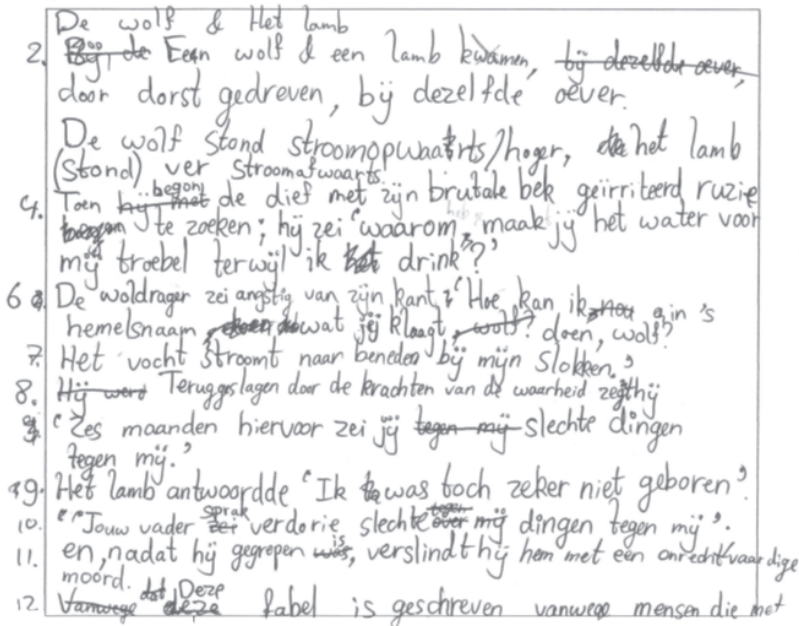 De wolf & Het lamb
2. Bij de Een wolf & een lamb kwamen, bij dezelfde oever,
door dorst gedreven, bij dezelfde oever.
De wolf stond stroomopwaarts/hoger, het lamb
(stond) ver stroomafwaarts.
4. Toen hij met begon de dief met zijn brutale bek geïrriteerd ruzie
began te zoeken; hij zei "waarom, maak jij het water voor
mij troebel terwijl ik het drink"?'
6 De woldrager zei angstig van zijn kant: 'Hoe kan ik, nou in 's
hemelsnaam, doen wat jij klaagt, wolf? doen, wolf?
7. Het vocht stroomt naar beneden bij mijn slokken.'
8. Hij werd Teruggeslagen door de krachten van de waarheid zegt hij
'Zes maanden hiervoor zei jij tegen mij slechte dingen
tegen mij.'
9. Het lamb antwoordde 'Ik was toch zeker niet geboren'.
10. "Jouw vader zei sprak verdorie slechte over tegen mij dingen tegen mij'.
11. en, nadat hij gegrepen was, is verslindt hij hem met een onrechtvaardige
moord.
12. Vanwege deze dat Deze fabel is geschreven vanwege mensen die met